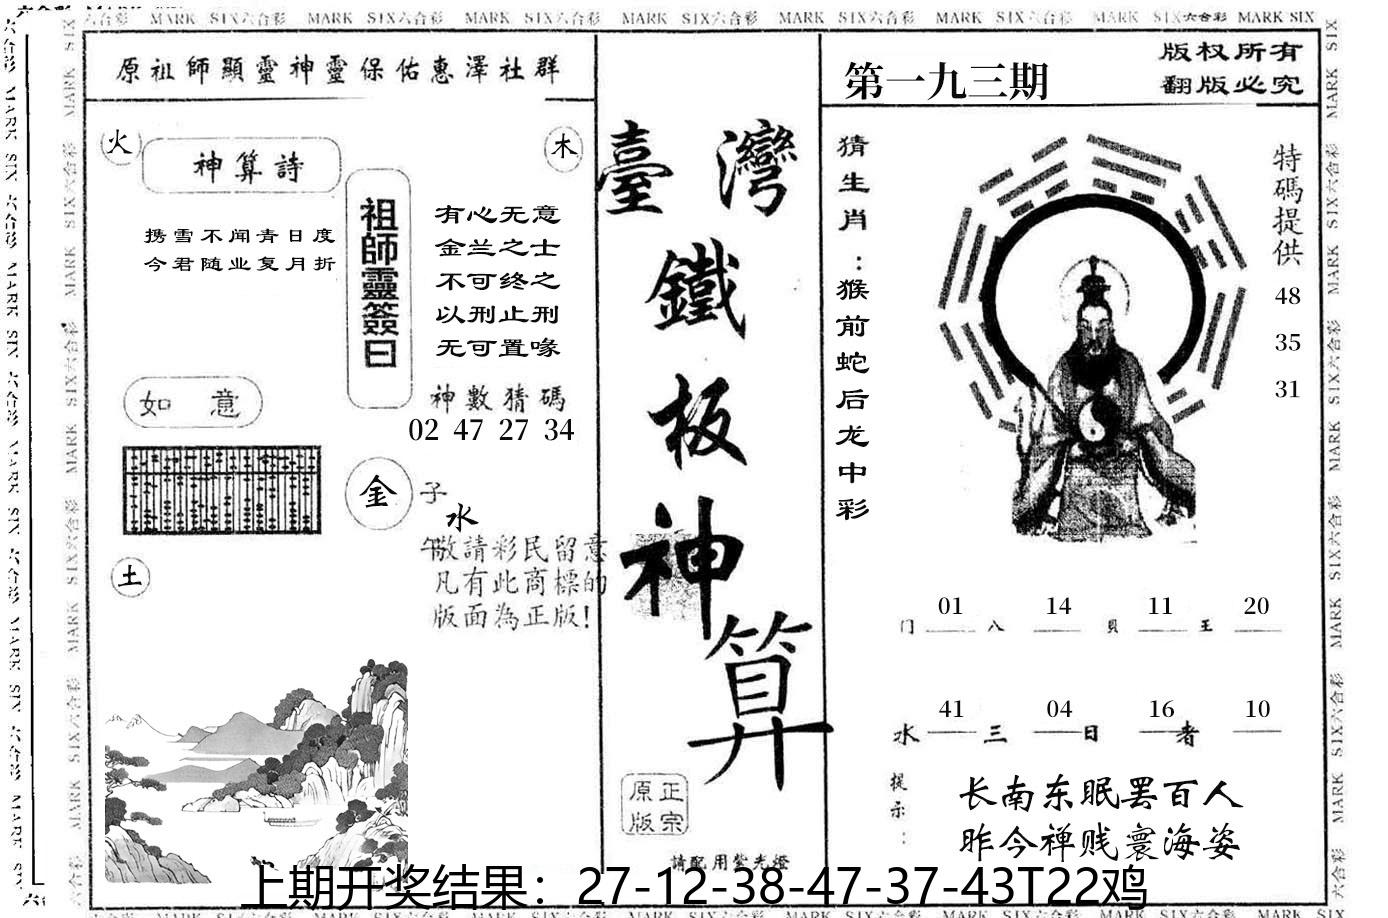 MARK SIX六合彩 MARK SIX六合彩 MARK SIX六合彩 MARK SIX六合彩 MARK SIX六合彩 MARK SIX六合彩 MARK SIX六合彩 MARK SIX
原祖師顯靈神靈保佑惠澤社群
火
神算詩
木
携雪不闻青日度
今君随业复月折
祖師靈簽曰
有心无意
金兰之士
不可终之
以刑止刑
无可置喙
神數猜碼
02 47 27 34
如 意
金
子
水
午
敬請彩民留意
凡有此商標的
版面為正版!
土
臺灣
鐵
板
神
算
正宗
原版
請配用紫光燈
第一九三期
版权所有
翻版必究
猜生肖:猴前蛇后龙中彩
特碼提供
48
35
31
01 14 11 20
门 八 貝 王
41 04 16 10
水 三 日 者
提示:
长南东眠罢百人
昨今禅贱寰海姿
上期开奖结果：27-12-38-47-37-43T22鸡